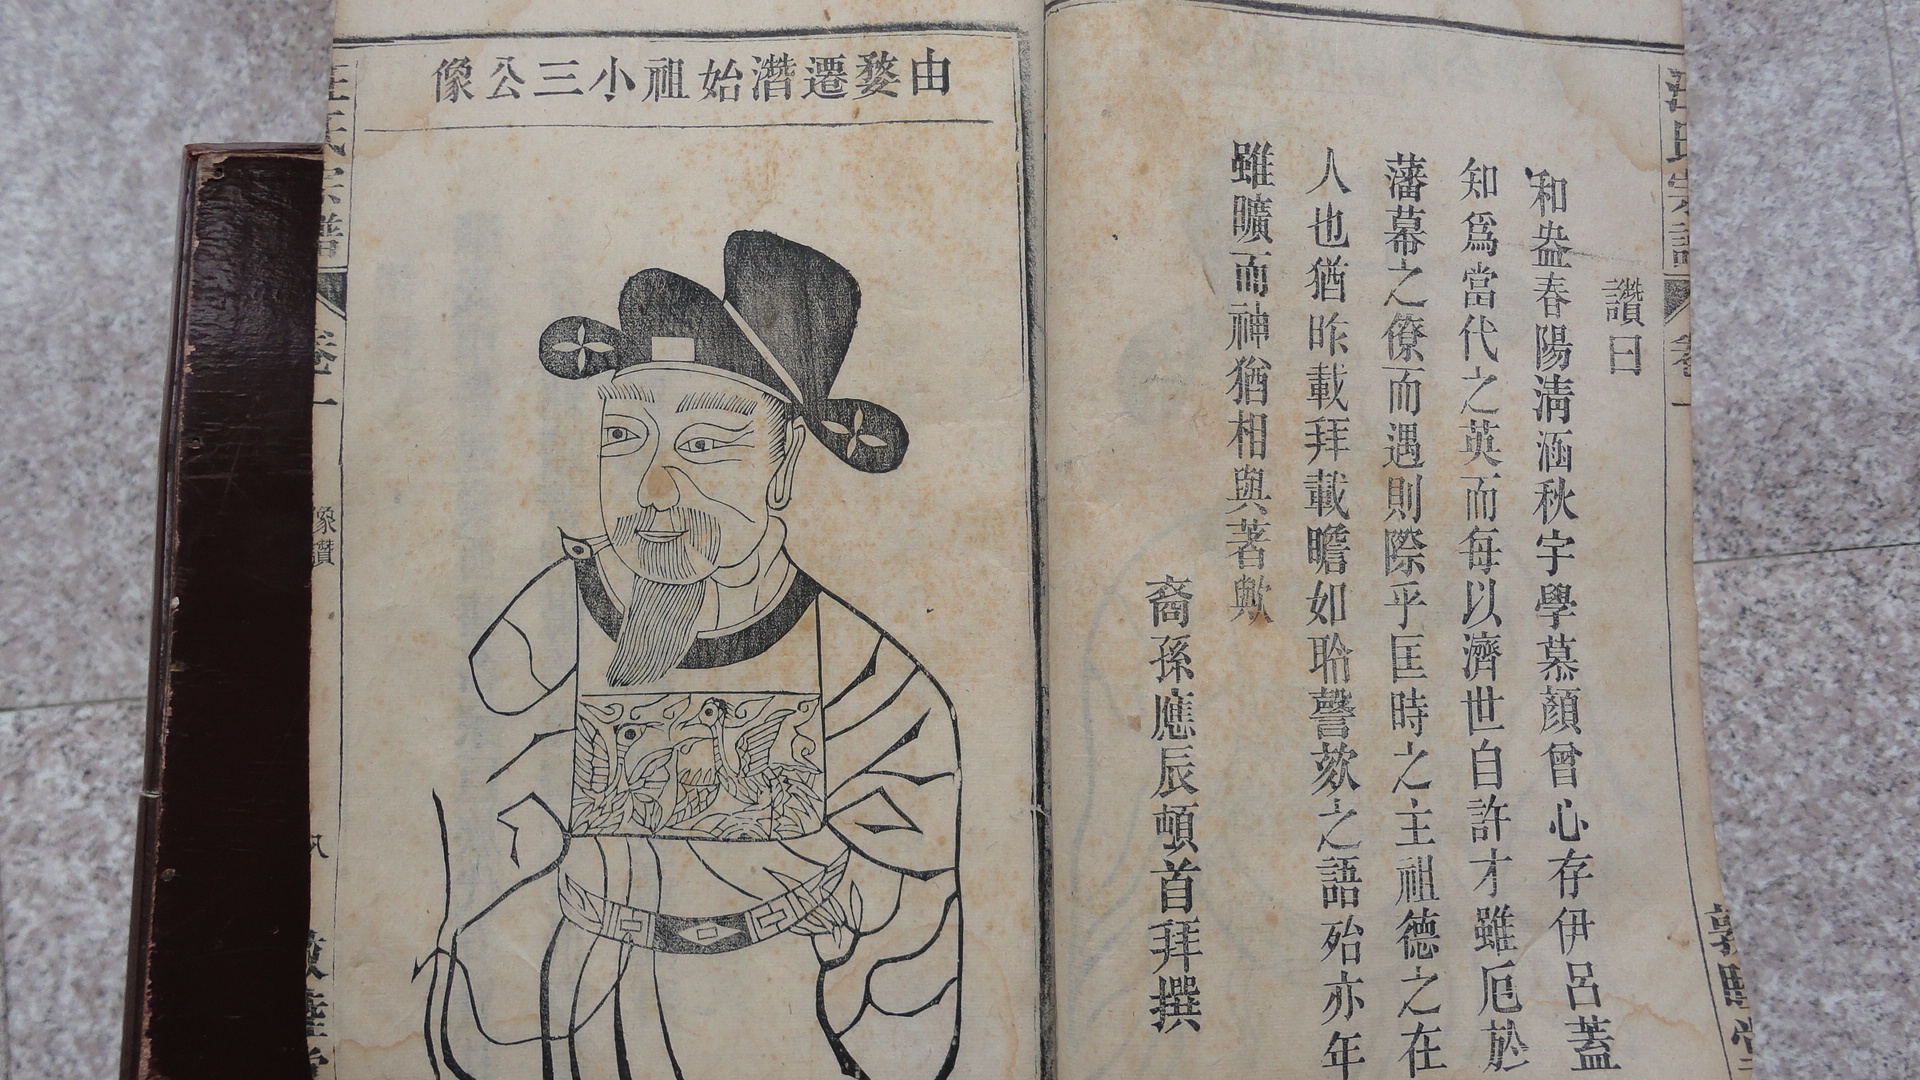 由婺遷潛始祖小三公像
讚曰
和盎春陽淸涵秋宇學慕顏曾心存伊呂蓋
知爲當代之英而每以濟世自許才雖厄於
藩幕之僚而遇則際乎匡時之主祖德之在
人也猶昨載拜載瞻如聆謦欬之語殆亦年
雖曠而神猶相與著歟
裔孫應辰頓首拜撰
汪氏宗譜
卷一
敦睦堂
汪氏宗譜
卷一
像讚